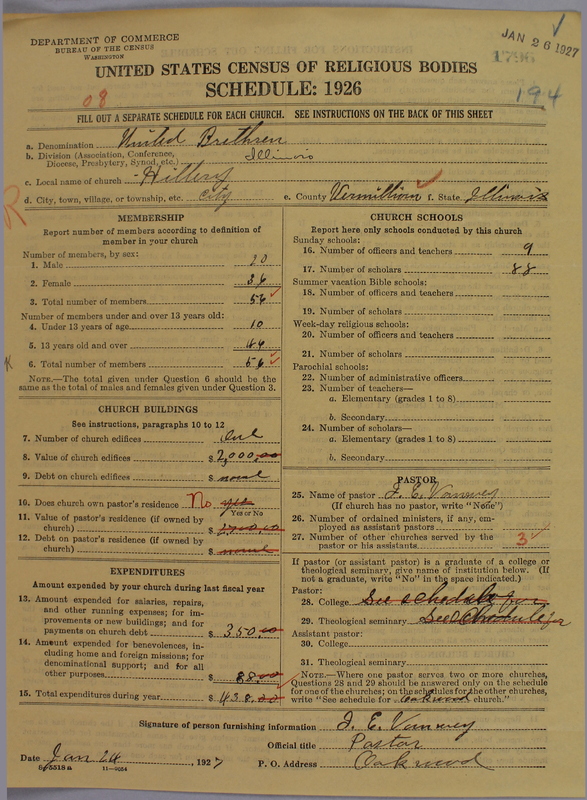 DEPARTMENT OF COMMERCE
BUREAU OF THE CENSUS
WASHINGTON
JAN 26 1927
1796
UNITED STATES CENSUS OF RELIGIOUS BODIES
SCHEDULE: 1926
08
194
FILL OUT A SEPARATE SCHEDULE FOR EACH CHURCH. SEE INSTRUCTIONS ON THE BACK OF THIS SHEET
a. Denomination United Brethren
b. Division (Association, Conference, Diocese, Presbytery, Synod, etc.) Illinois
c. Local name of church Hillery
d. City, town, village, or township, etc. City e. County Vermillion f. State Illinois
MEMBERSHIP
Report number of members according to definition of member in your church
Number of members, by sex:
1. Male 20
2. Female 36
3. Total number of members 56
Number of members under and over 13 years old:
4. Under 13 years of age 10
5. 13 years old and over 46
6. Total number of members 56
NOTE.—The total given under Question 6 should be the same as the total of males and females given under Question 3.
CHURCH BUILDINGS
See instructions, paragraphs 10 to 12
7. Number of church edifices One
8. Value of church edifices $ 2,000.00
9. Debt on church edifices $ none
10. Does church own pastor's residence No yes
Yes or No
11. Value of pastor's residence (if owned by church) $
12. Debt on pastor's residence (if owned by church) $
EXPENDITURES
Amount expended by your church during last fiscal year
13. Amount expended for salaries, repairs, and other running expenses; for improvements or new buildings; and for payments on church debt $ 350.00
14. Amount expended for benevolences, including home and foreign missions; for denominational support; and for all other purposes $ 88.00
15. Total expenditures during year $ 438.00
CHURCH SCHOOLS
Report here only schools conducted by this church
Sunday schools:
16. Number of officers and teachers 9
17. Number of scholars 88
Summer vacation Bible schools:
18. Number of officers and teachers
19. Number of scholars
Week-day religious schools:
20. Number of officers and teachers
21. Number of scholars
Parochial schools:
22. Number of administrative officers
23. Number of teachers—
a. Elementary (grades 1 to 8)
b. Secondary
24. Number of scholars—
a. Elementary (grades 1 to 8)
b. Secondary
PASTOR
25. Name of pastor
(If church has no pastor, write "None")
26. Number of ordained ministers, if any, employed as assistant pastors
27. Number of other churches served by the pastor or his assistants 3
If pastor (or assistant pastor) is a graduate of a college or theological seminary, give name of institution below. (If not a graduate, write "No" in the space indicated.)
Pastor:
28. College See schedule for
29. Theological seminary See Schedule for
Assistant pastor:
30. College
31. Theological seminary
NOTE.—Where one pastor serves two or more churches, Questions 28 and 29 should be answered only on the schedule for one of the churches; on the schedules for the other churches, write "See schedule for Oakwood church."
Signature of person furnishing information
Official title Pastor
Date Jan 24, 1927 P. O. Address Oakwood
8-5518a 11-9054